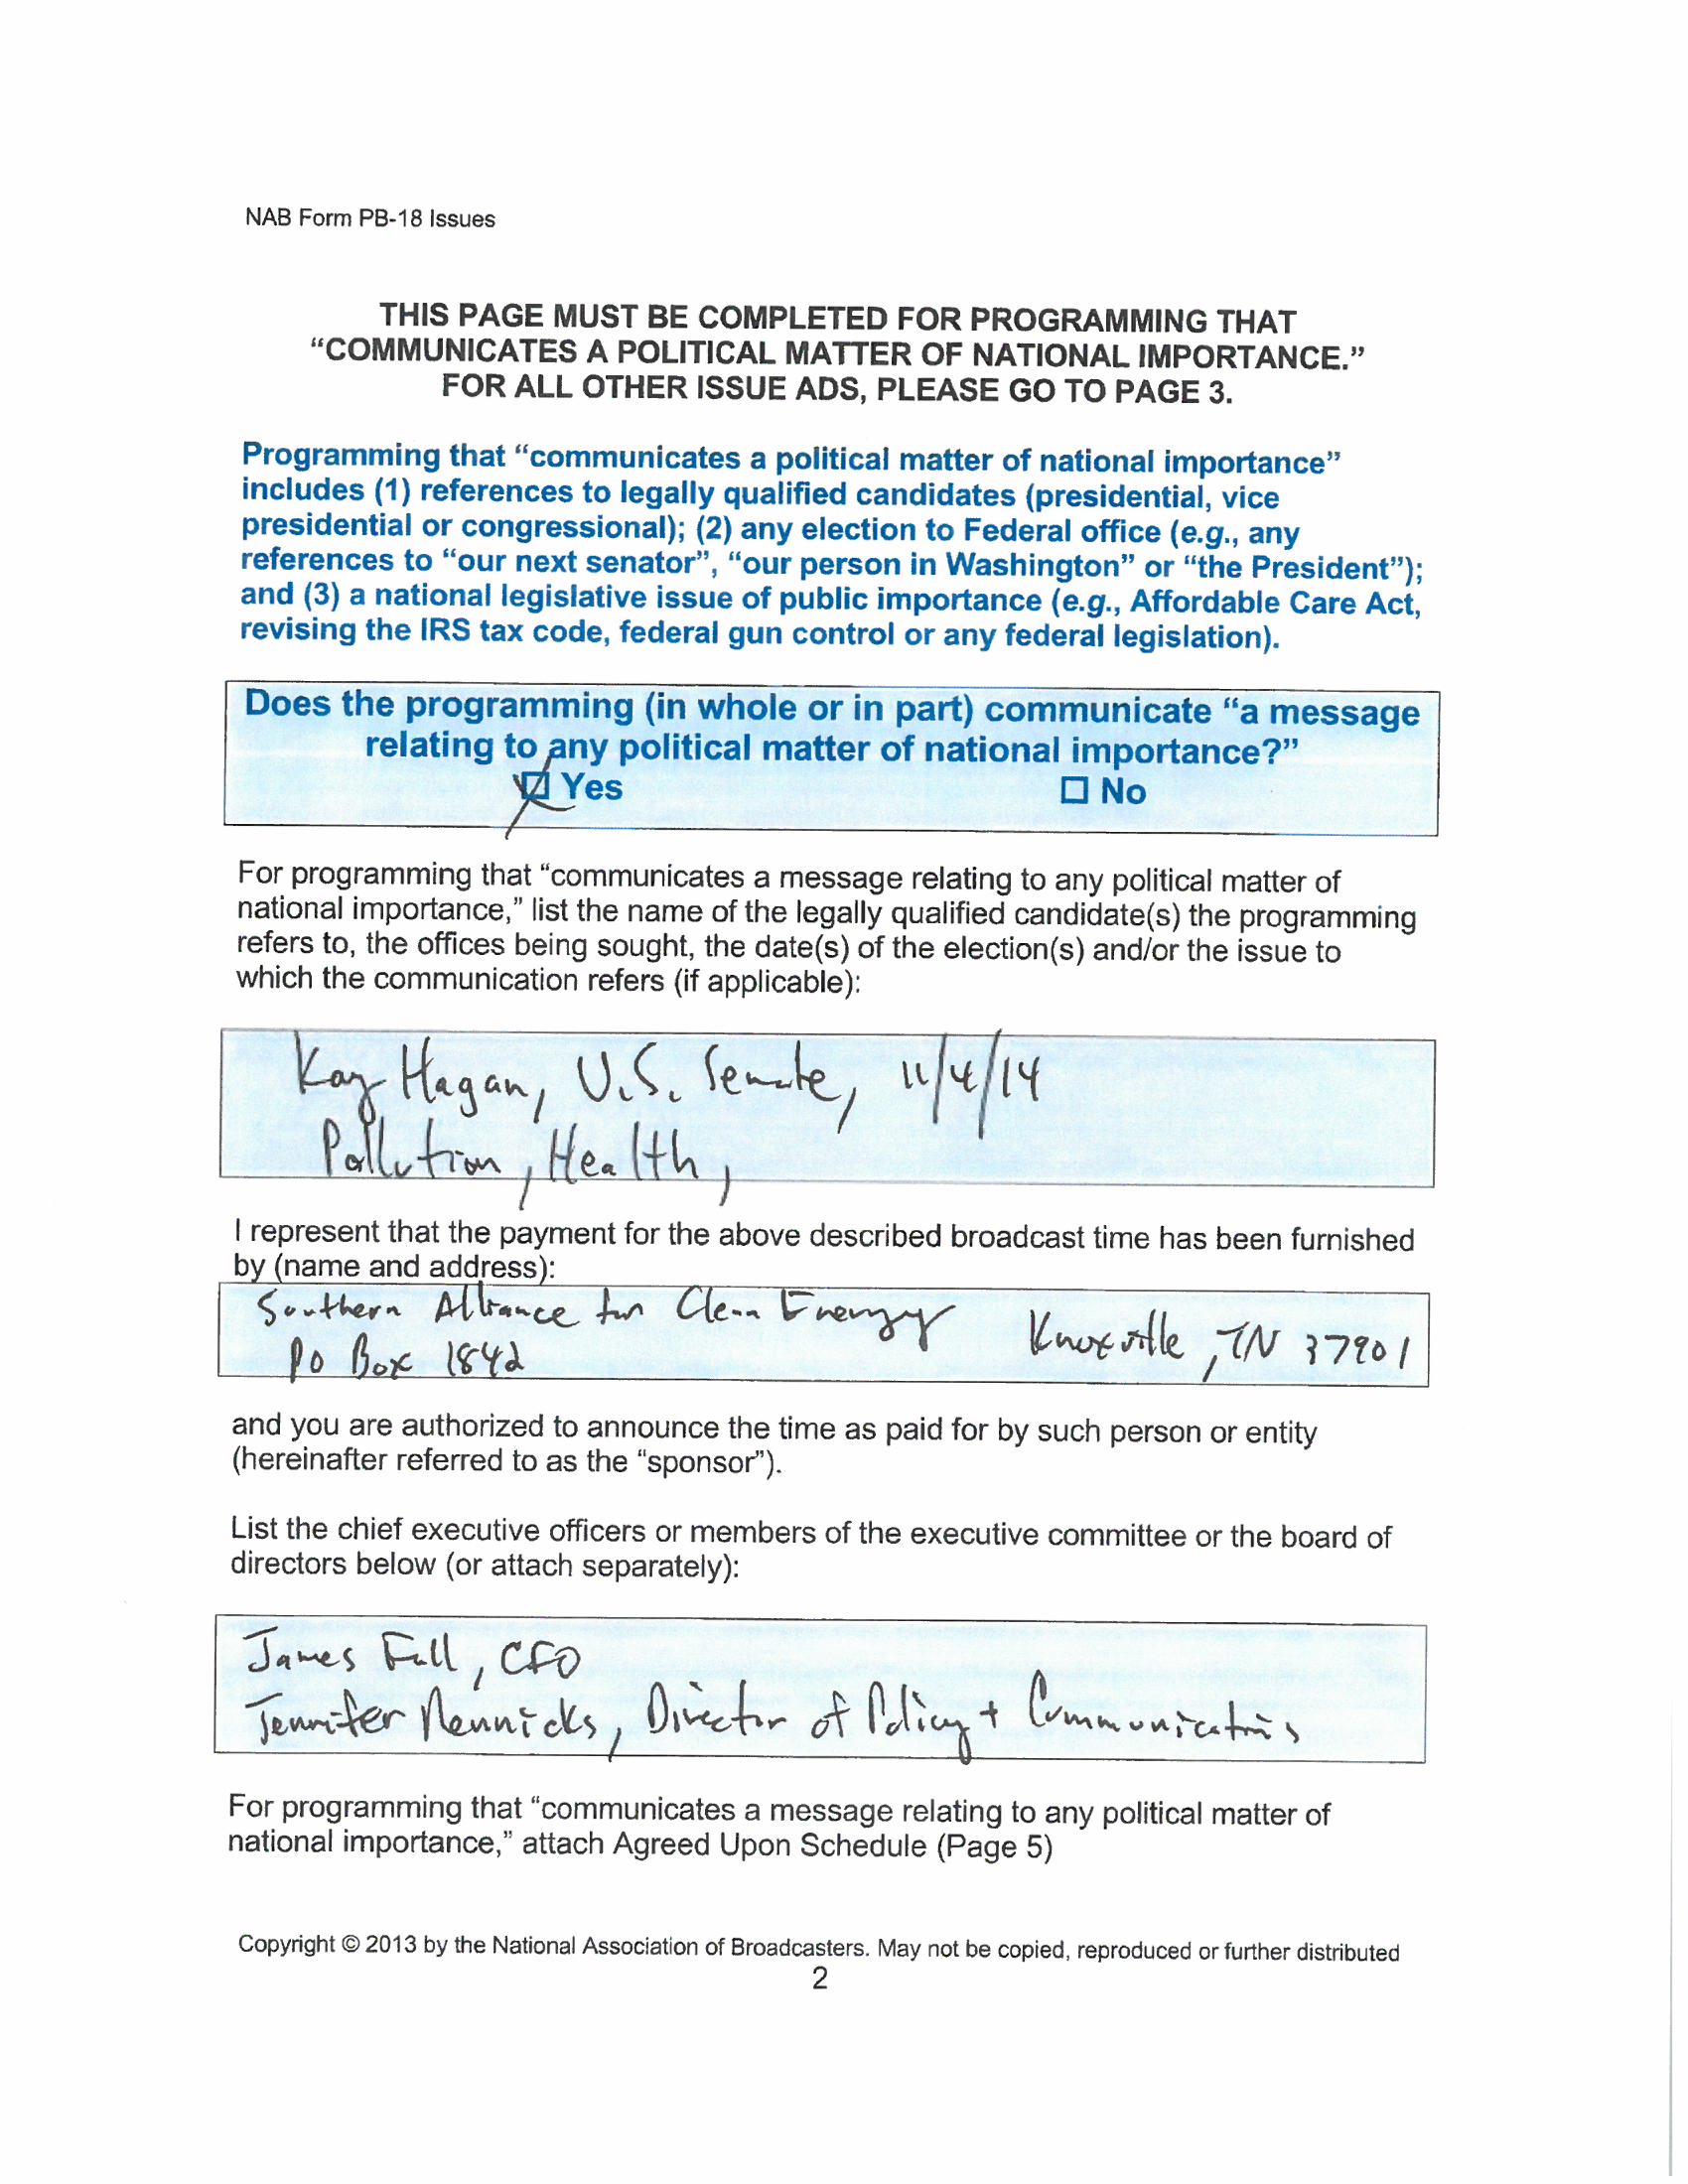 NAB Form PB-18 Issues
THIS PAGE MUST BE COMPLETED FOR PROGRAMMING THAT
“COMMUNICATES A POLITICAL MATTER OF NATIONAL IMPORTANCE.”
FOR ALL OTHER ISSUE ADS, PLEASE GO TO PAGE 3.
Programming that “communicates a political matter of national importance”
includes (1) references to legally qualified candidates (presidential, vice
presidential or congressional); (2) any election to Federal office (e.g., any
references to “our next senator”, “our person in Washington” or “the President”);
and (3) a national legislative issue of public importance (e.g., Affordable Care Act,
revising the IRS tax code, federal gun control or any federal legislation).
Does the programming (in whole or in part) communicate “a message
relating to any political matter of national importance?”
Yes No
For programming that “communicates a message relating to any political matter of
national importance,” list the name of the legally qualified candidate(s) the programming
refers to, the offices being sought, the date(s) of the election(s) and/or the issue to
which the communication refers (if applicable):
Kay Hagan, U.S. Senate, 11/4/14
Pollution, Health,
I represent that the payment for the above described broadcast time has been furnished
by (name and address):
Southern Alliance for Clean Energy
PO Box 1842 Knoxville, TN 37901
and you are authorized to announce the time as paid for by such person or entity
(hereinafter referred to as the “sponsor”).
List the chief executive officers or members of the executive committee or the board of
directors below (or attach separately):
James Fall, CFO
Jennifer Rennicks, Director of Policy + Communications
For programming that “communicates a message relating to any political matter of
national importance,” attach Agreed Upon Schedule (Page 5)
Copyright © 2013 by the National Association of Broadcasters. May not be copied, reproduced or further distributed
2